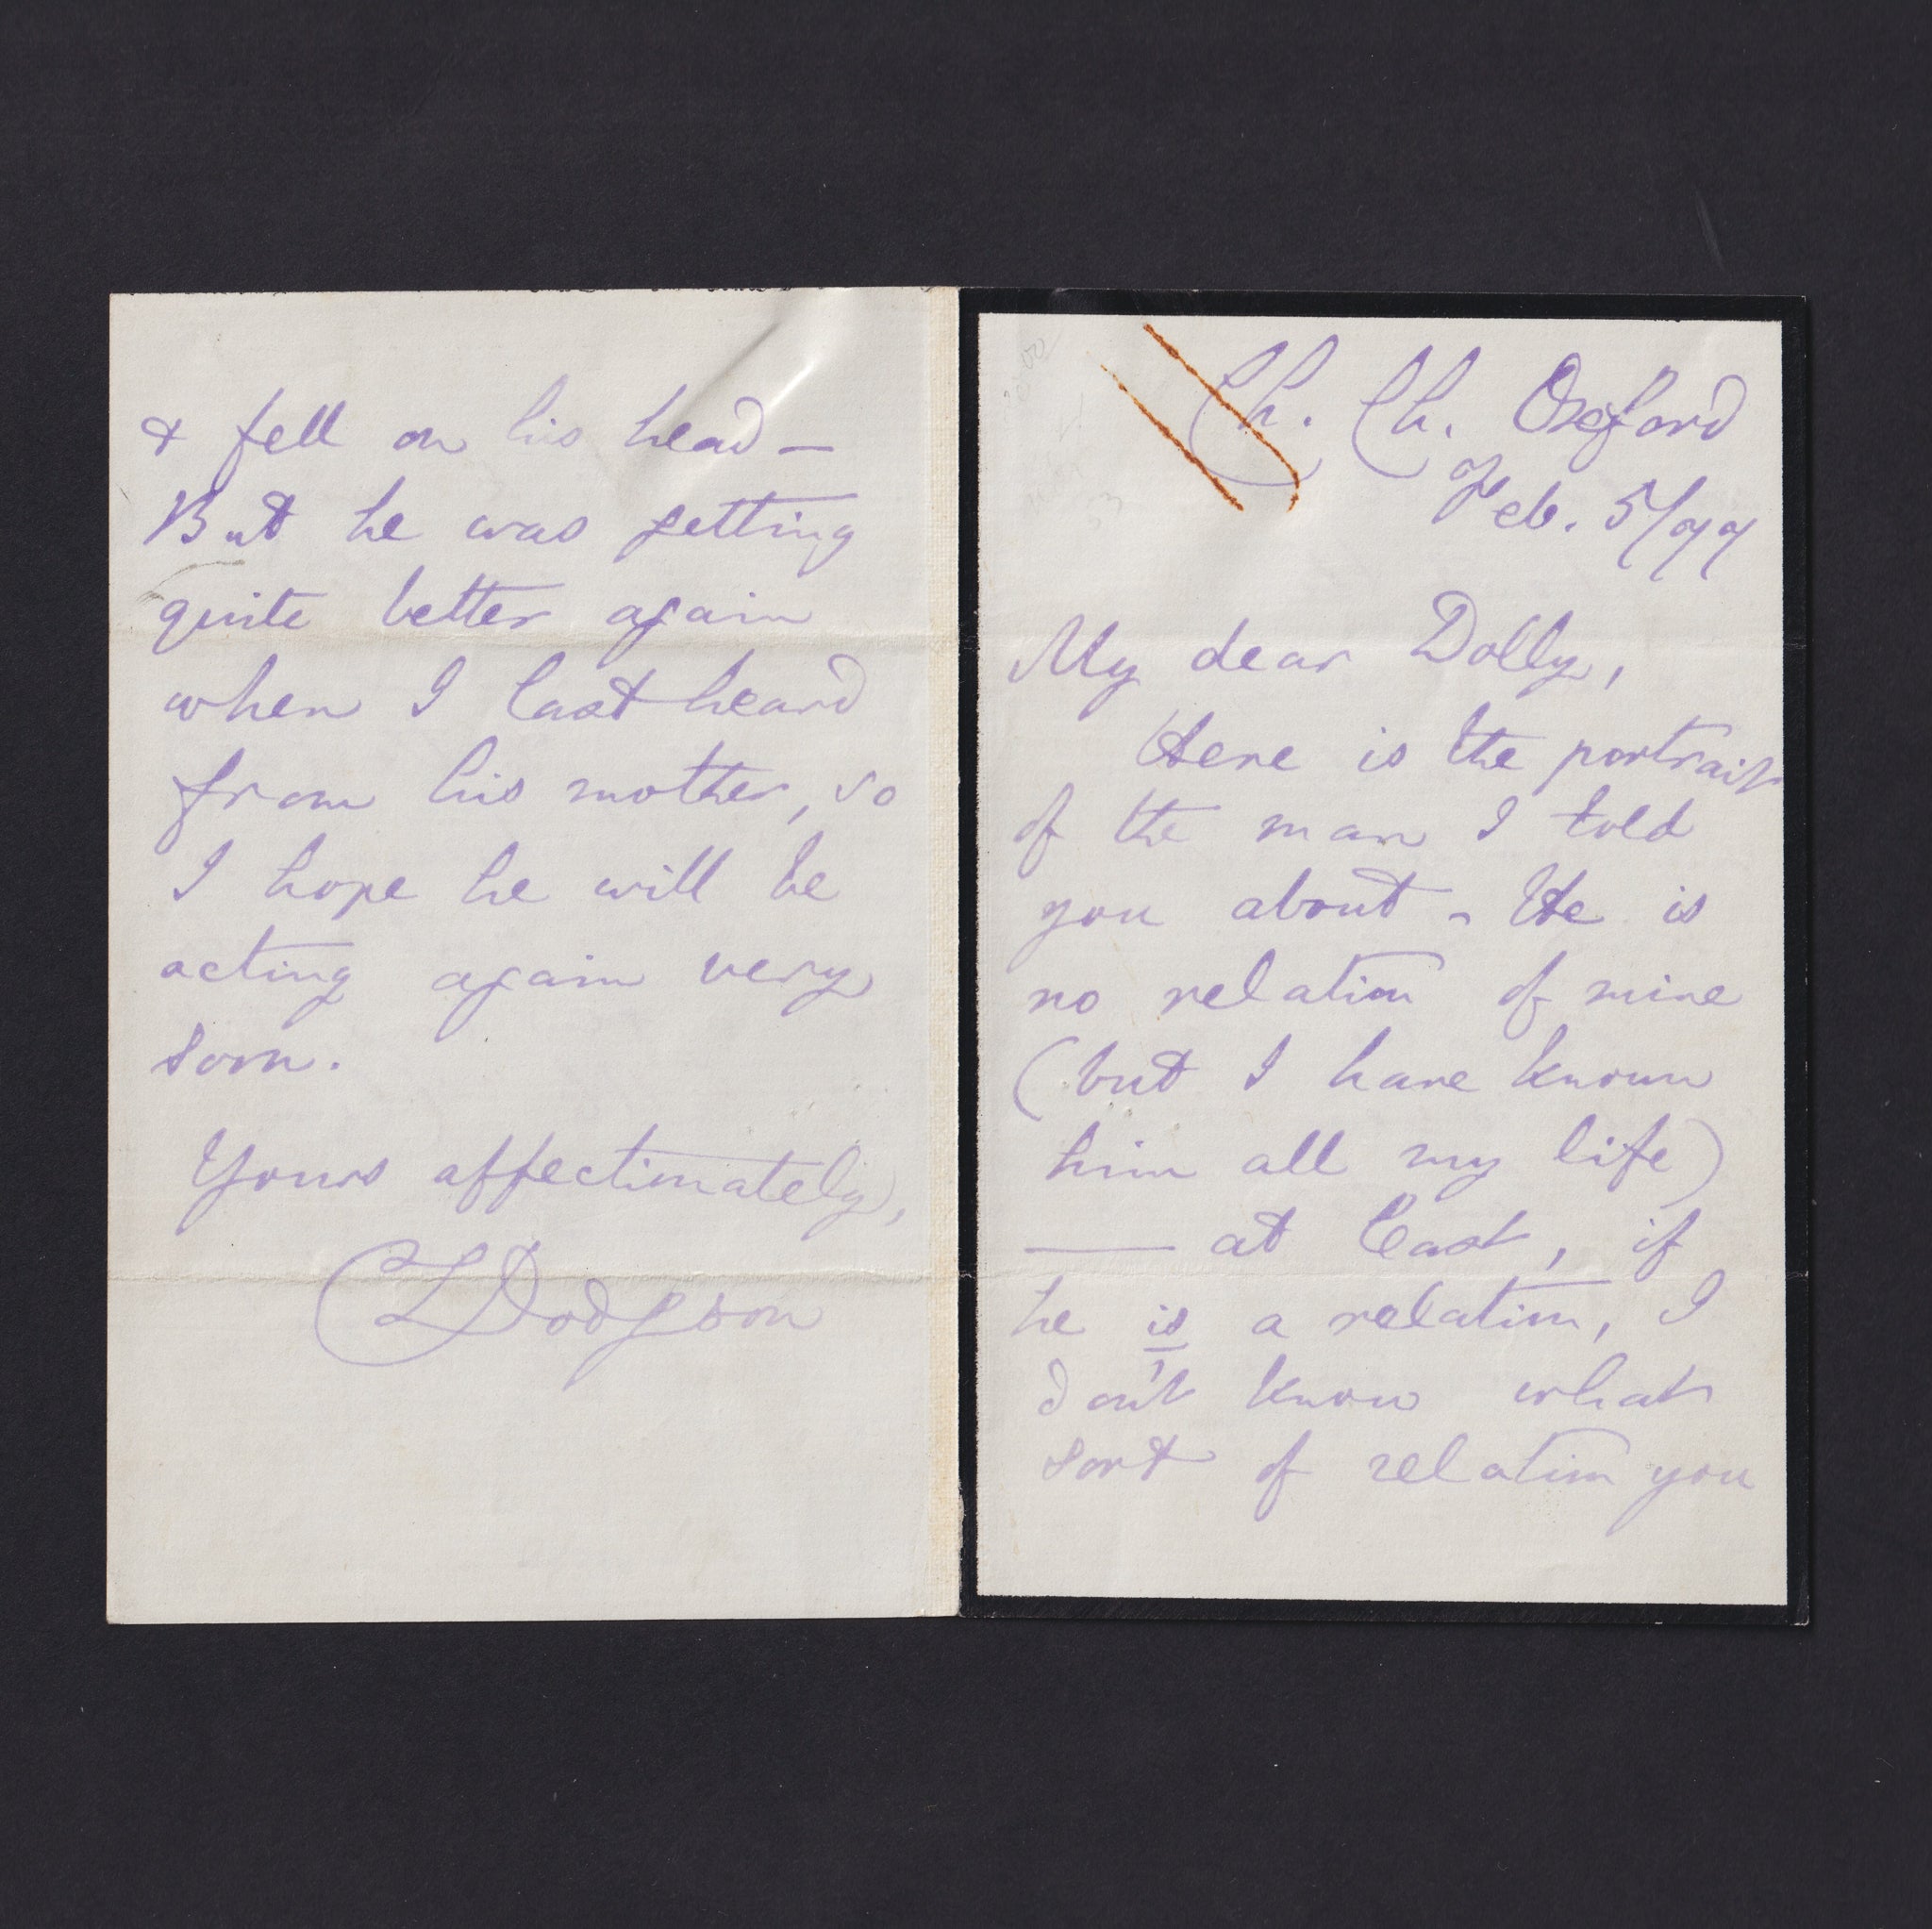 Ch. Ch. Oxford
Feb. 5/77
My dear Dolly,
Here is the portrait
of the man I told
you about - He is
no relation of mine
(but I have known
him all my life)
— at least, if
he is a relation, I
don't know what
sort of relation you
& fell on his head —
But he was getting
quite better again
when I last heard
from his mother, so
I hope he will be
acting again very
soon.
Yours affectionately,
CLDodgson